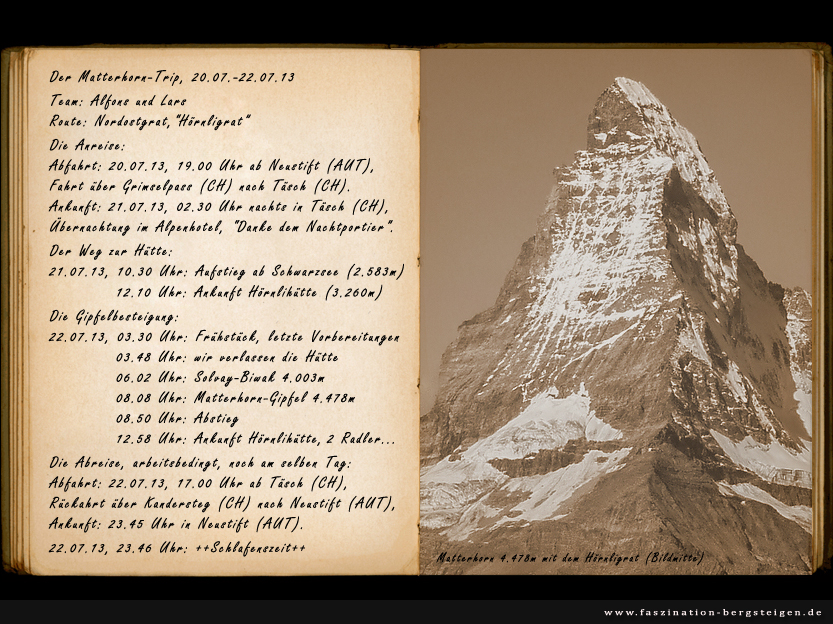 Der Matterhorn-Trip, 20.07.-22.07.13
Team: Alfons und Lars
Route: Nordostgrat, "Hörnligrat"
Die Anreise:
Abfahrt: 20.07.13, 19.00 Uhr ab Neustift (AUT),
Fahrt über Grimselpass (CH) nach Täsch (CH).
Ankunft: 21.07.13, 02.30 Uhr nachts in Täsch (CH),
Übernachtung im Alpenhotel, "Danke dem Nachtportier".
Der Weg zur Hütte:
21.07.13, 10.30 Uhr: Aufstieg ab Schwarzsee (2.583m)
12.10 Uhr: Ankunft Hörnlihütte (3.260m)
Die Gipfelbesteigung:
22.07.13, 03.30 Uhr: Frühstück, letzte Vorbereitungen
03.48 Uhr: wir verlassen die Hütte
06.02 Uhr: Solvay-Biwak 4.003m
08.08 Uhr: Matterhorn-Gipfel 4.478m
08.50 Uhr: Abstieg
12.58 Uhr: Ankunft Hörnlihütte, 2 Radler...
Die Abreise, arbeitsbedingt, noch am selben Tag:
Abfahrt: 22.07.13, 17.00 Uhr ab Täsch (CH),
Rückahrt über Kandersteg (CH) nach Neustift (AUT),
Ankunft: 23.45 Uhr in Neustift (AUT).
22.07.13, 23.46 Uhr: ++Schlafenszeit++
Matterhorn 4.478m mit dem Hörnligrat (Bildmitte)
www.faszination-bergsteigen.de